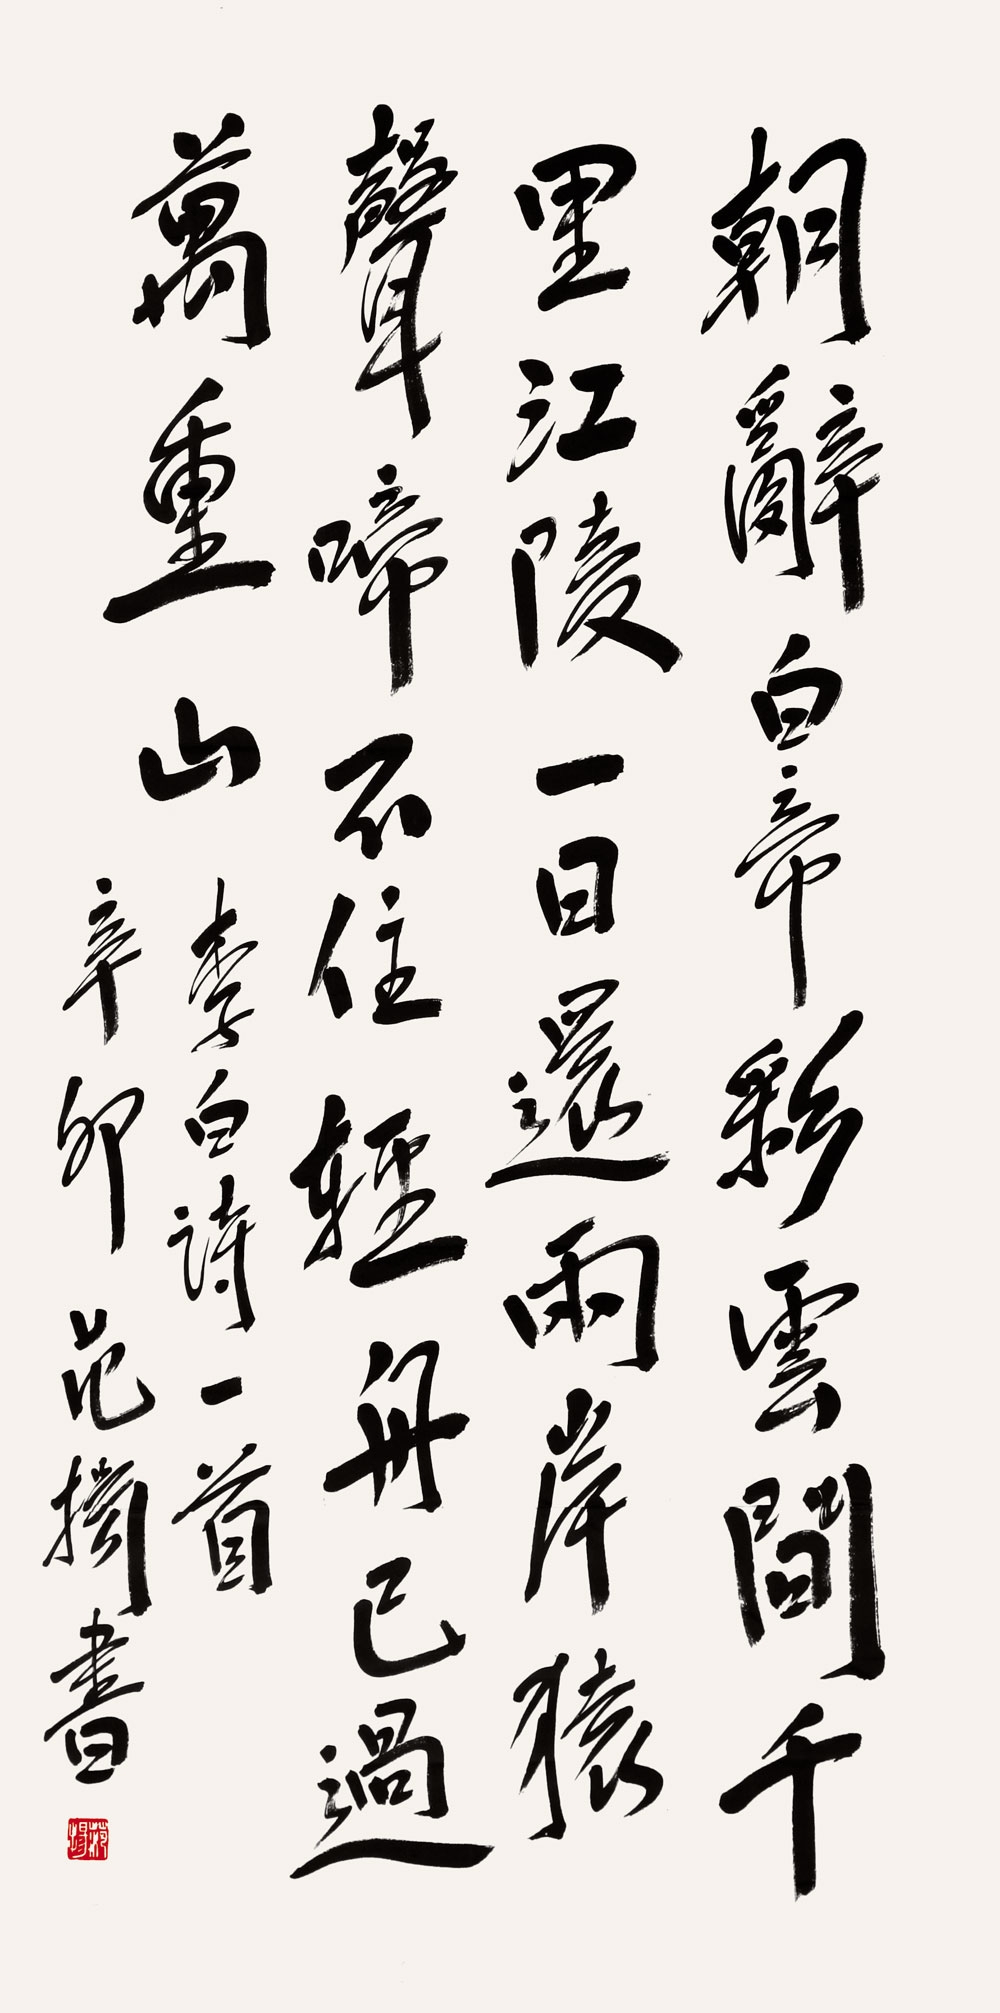 朝辭白帝彩雲間千
里江陵一日還兩岸猿
聲啼不住輕舟已過
萬重山
李白詩一首
辛卯范擣書